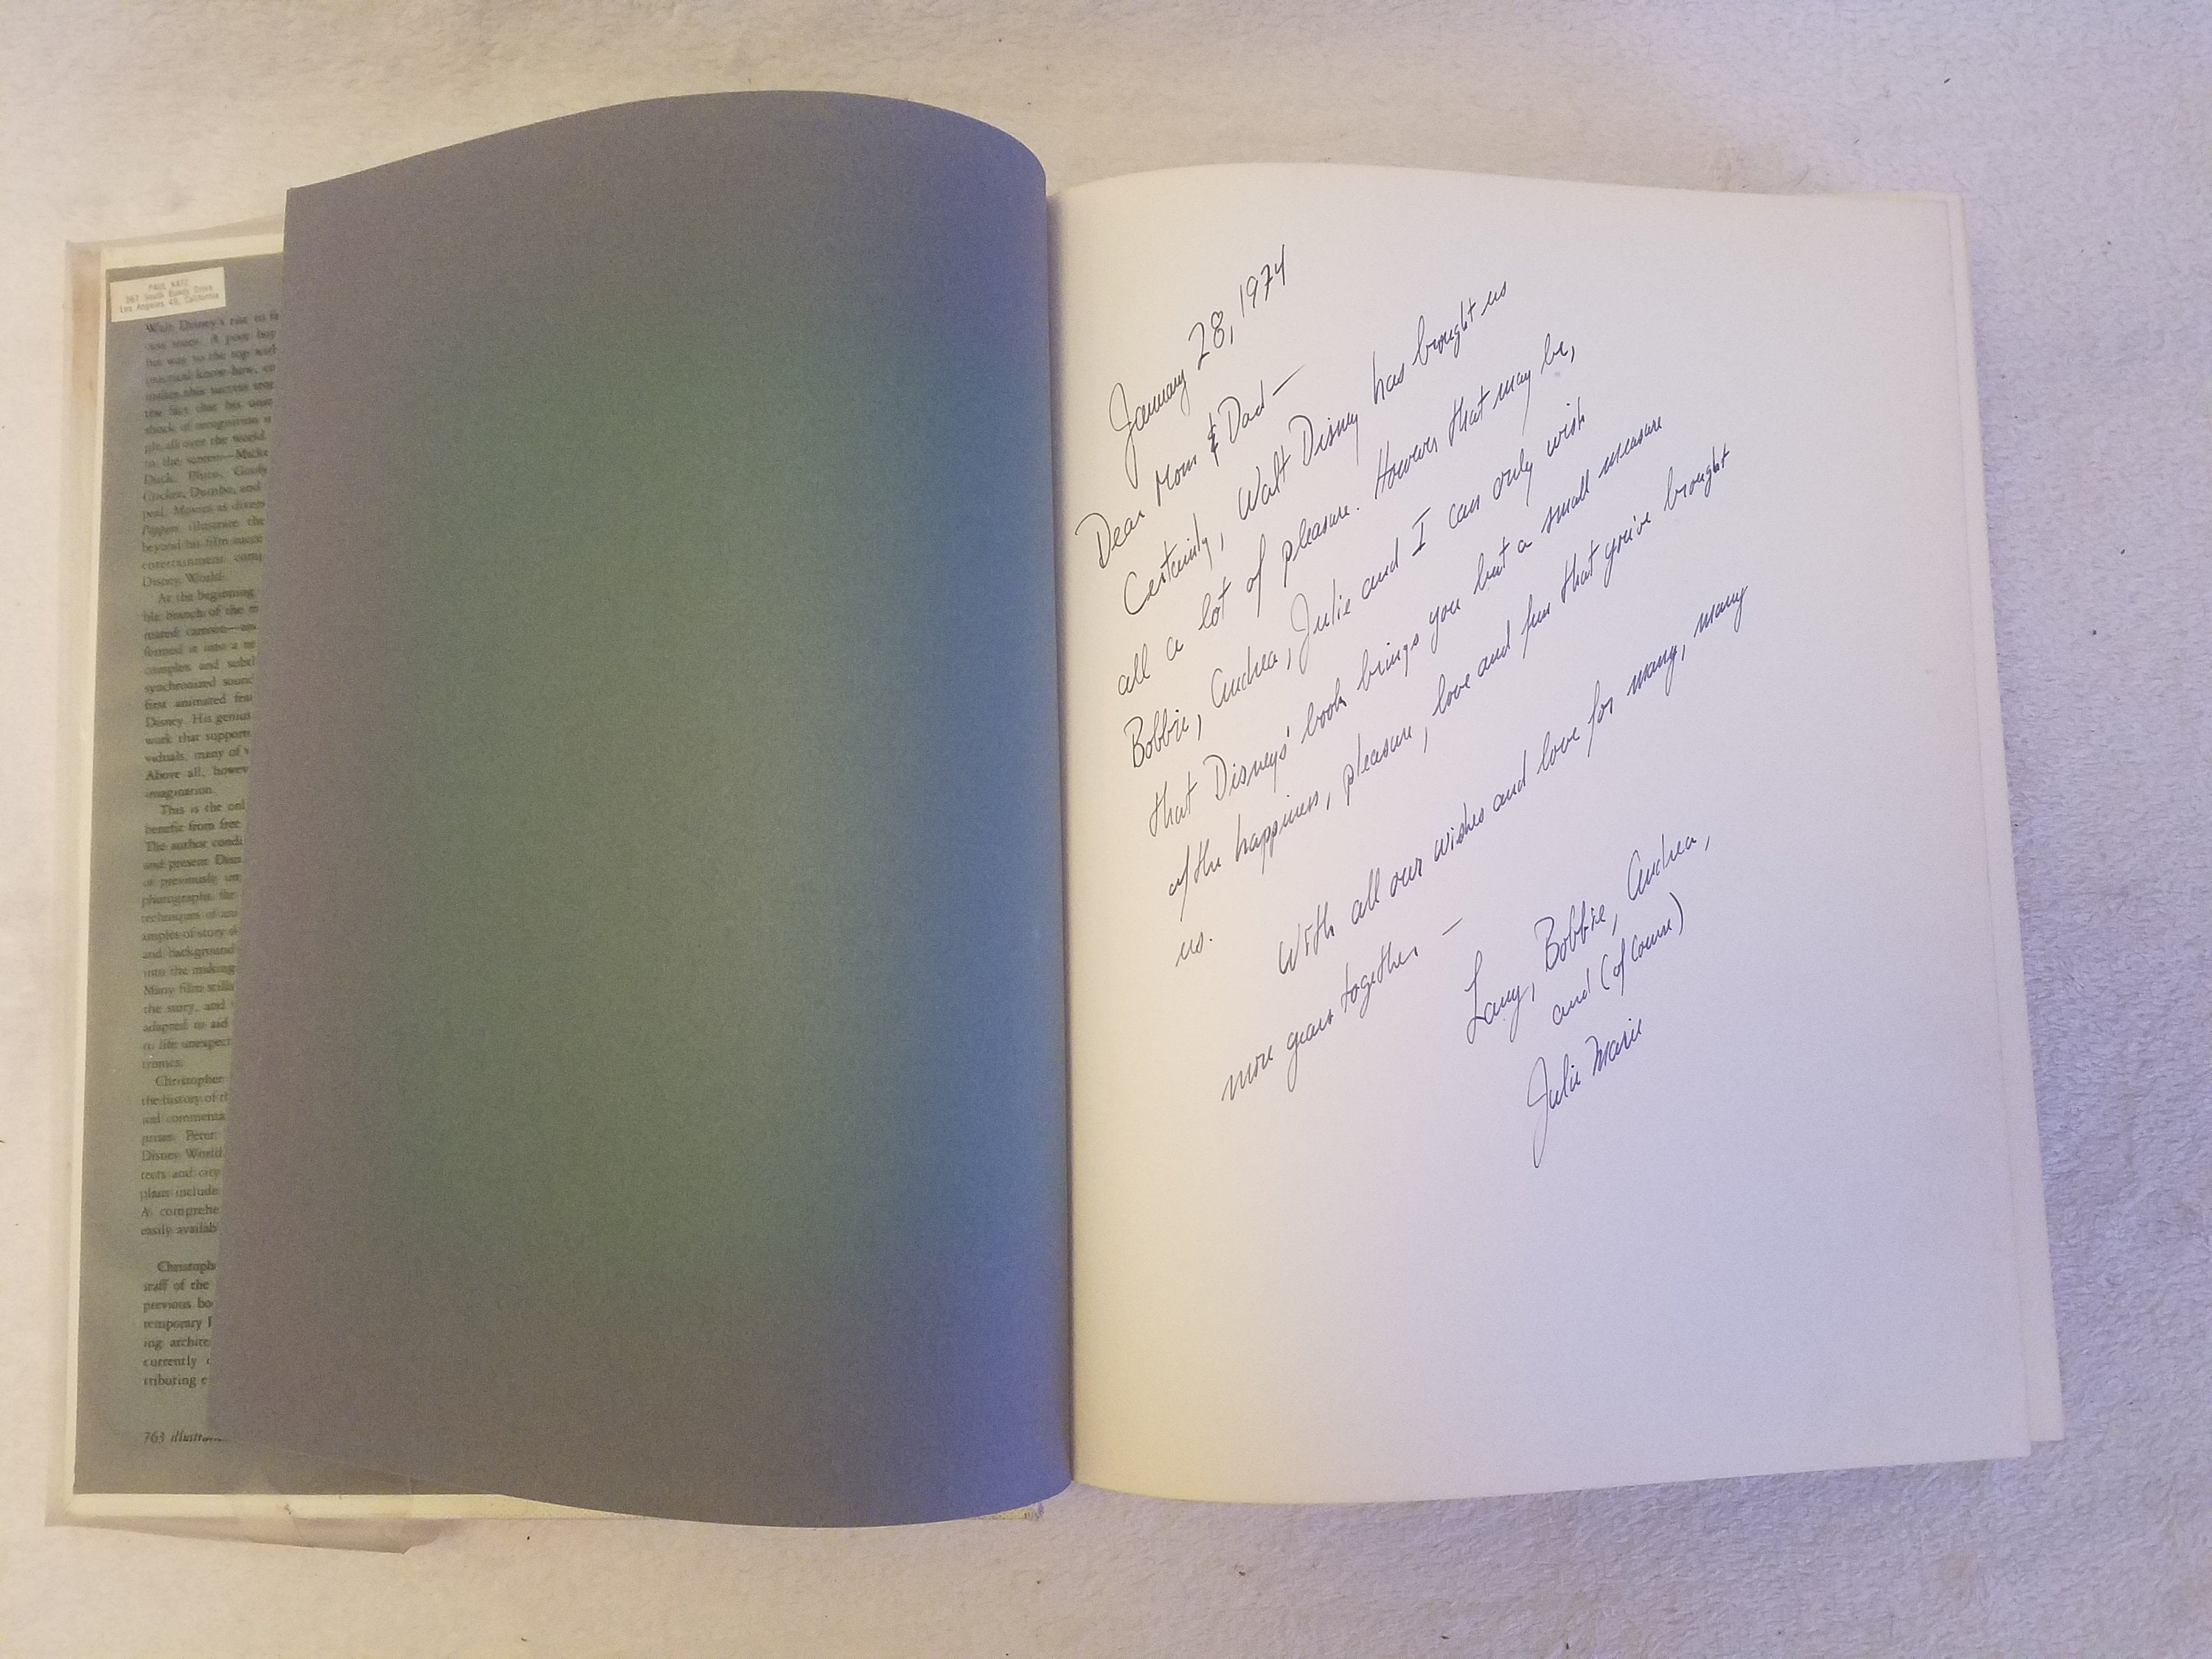 PAUL KATZ
367 South Bundy Drive
Los Angeles 49, California
Walt Disney's rise to fa
cess story. A poor boy
his way to the top with
practical know-how, co
makes this success stor
the fact that his
shock of recognition
ple all over the world
to the screen—Micke
Duck, Pluto, Goofy
Cricket, Dumbo, and
peal. Movies as divers
Poppins illustrate the
beyond his film succe
entertainment comp
Disney World.
At the beginning
ble branch of the m
mated cartoon—and
formed it into a ne
complex and subtl
synchronized sound
first animated feat
Disney. His genius
work that support
viduals, many of
Above all, howev
imagination.
This is the onl
benefit from free
The author condu
and present Disn
of previously un
photographs, the
techniques of ani
amples of story
and background
into the making
Many film stills
the story, and
adapted to aid
to life unexpect
tronics.
Christopher
the history of th
ical commenta
prises. Peter
Disney World
tects and city
plans include
A comprehe
easily availab
Christoph
staff of the
previous bo
temporary P
ing archite
currently
tributing e
763 illustra
January 28, 1974
Dear Mom & Dad —
Certainly, Walt Disney has brought us
all a lot of pleasure. However that may be,
Bobbie, Andrea, Julie and I can only wish
that Disneys' book brings you but a small measure
of the happiness, pleasure, love and fun that you've brought
us.
With all our wishes and love for many, many
more years together —
Larry, Bobbie, Andrea,
and (of course)
Julie Marie